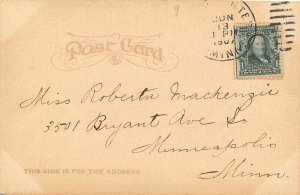 9
JUN
13
1 PM
1907
MINN
Post Card
Miss Roberta Mackenzie
3501 Bryant Ave So
Minneapolis
Minn.
THIS SIDE IS FOR THE ADDRESS.